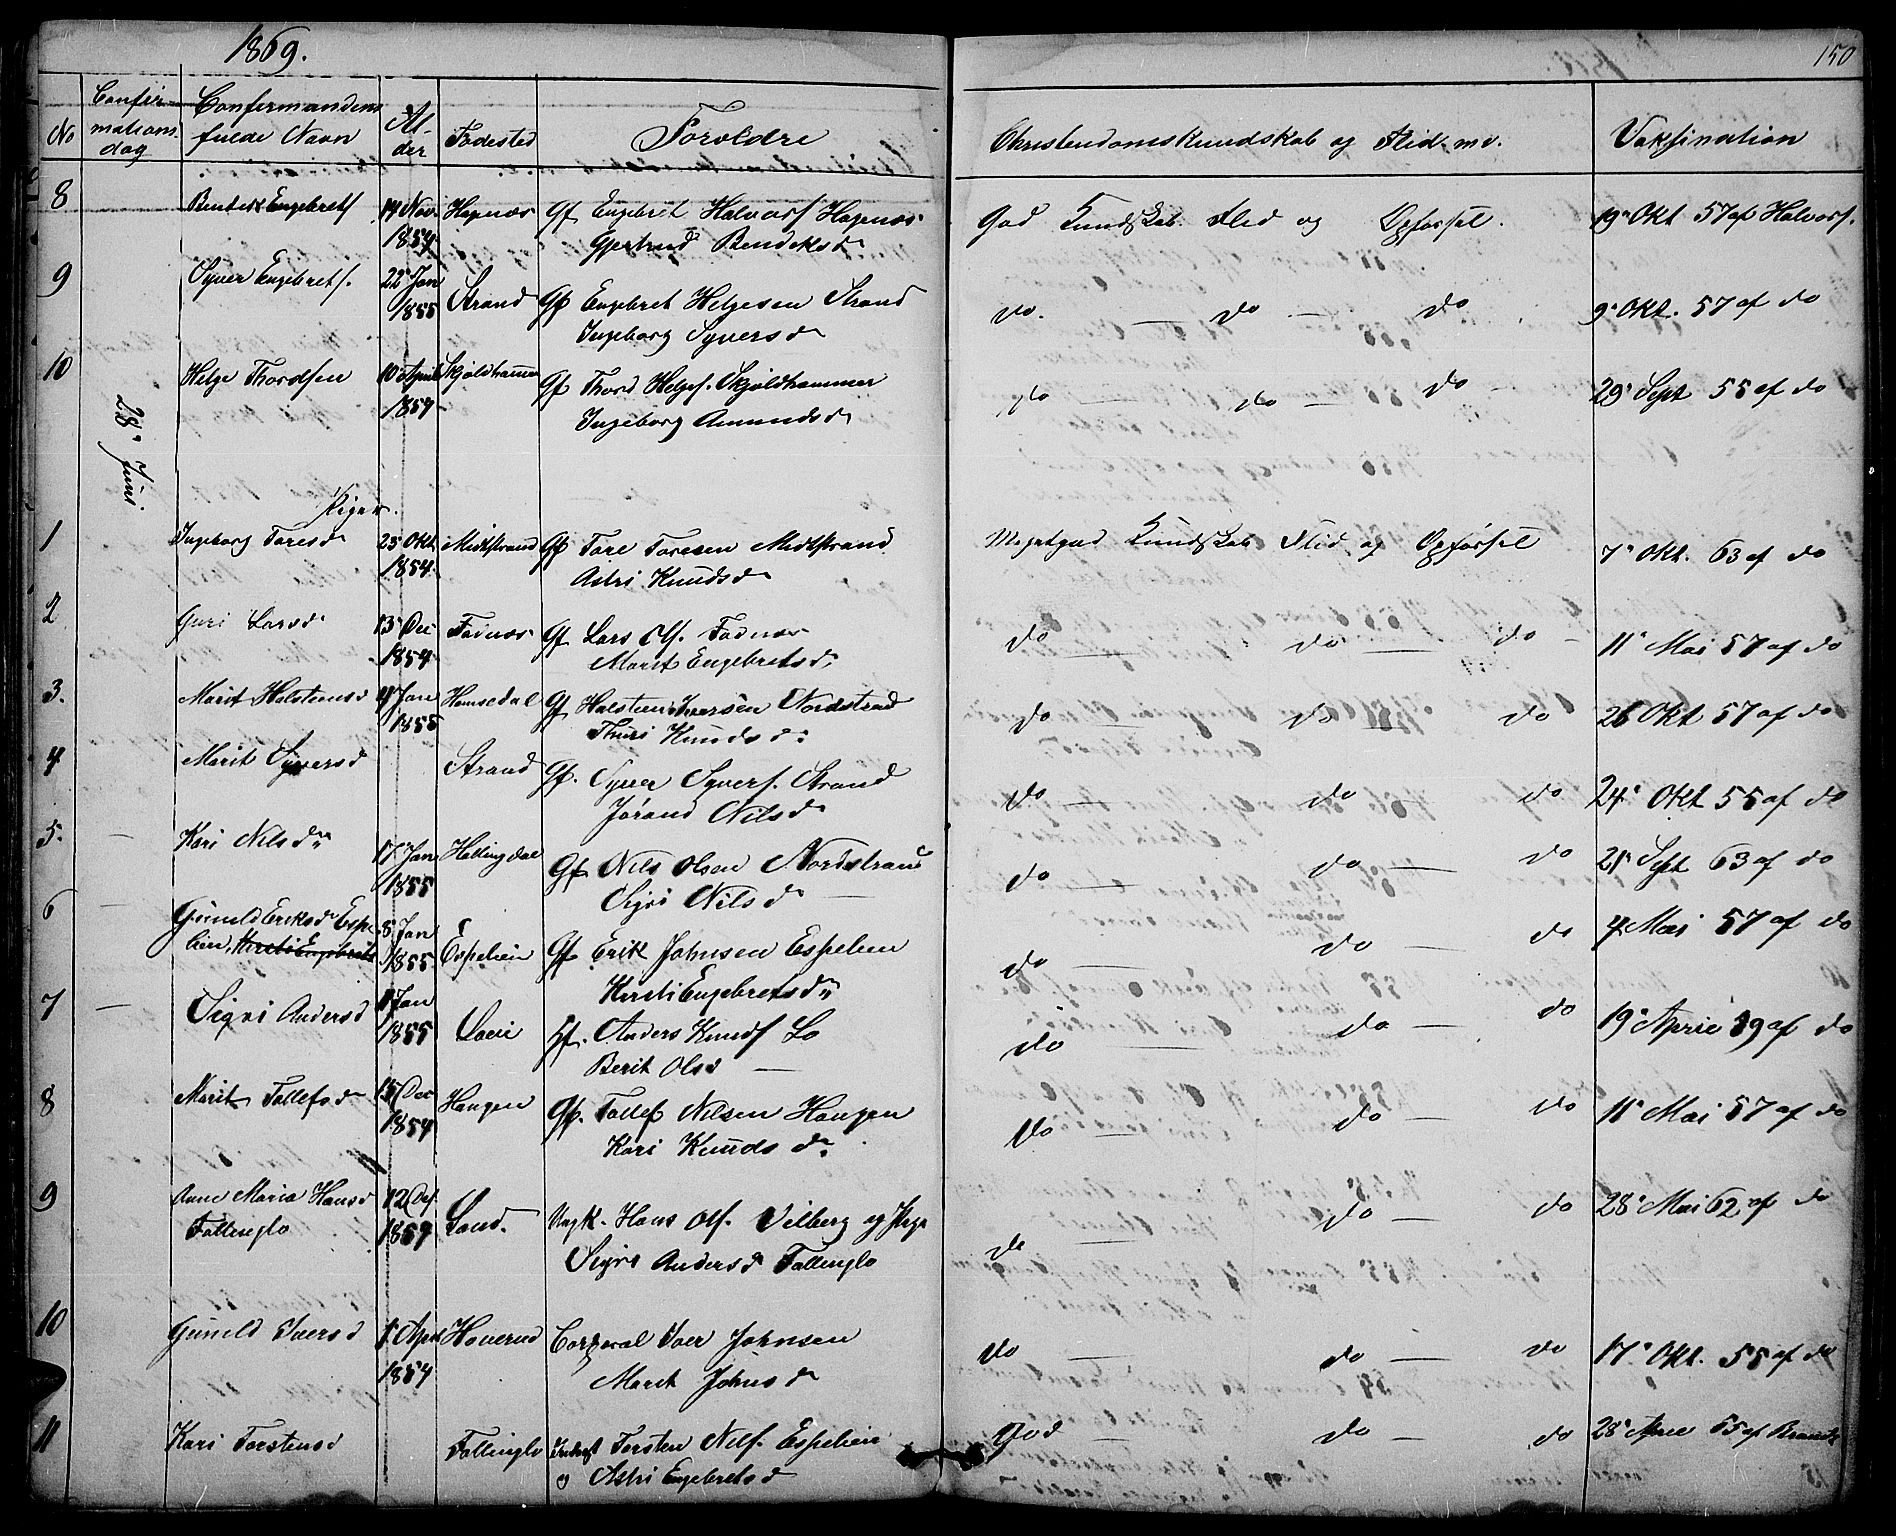 1869.
150
No
Confir-
mations
dag
Confirmandens
fulde Navn
Al-
der
Fødested
Forældre
Christendomskundskab og Flid. mv.
Vaksination
28de Juni.
8 Bendik Engebretf 14 Nov Hagnæs Gf Engebret Halvorf Hagnæs God Kundskab Flid og Opførsel. 19 Okt 57 af Halvorf.
1854 Gjertrud Bendeksd
9 Syver Engebretf. 22 Jan Strand Gf Engebret Helgesen Strand do. — do — do 9 Okt. 57 af do
1855 Ingeborg Syversd
10 Helge Thordsen 10 April Skjoldhammer Gf Thord Helgef. Skjoldhammer do — do — do 29 Sept 55 af do
1854 Ingeborg Amundsd
Piger
1 Ingeborg Toresd 23 Okt Midtstrand Gf Tore Toresen Midtstrand Megetgod Kundskab Flid og Opførsel 7 Okt. 63 af do
1854. Astri Knudsd
2 Guri Larsd 13 Dec Fodnæs Gf Lars Olf. Fodnæs do — do — do 11 Mai 57 af do
1854 Marit Engebretsd
3. Marit Halsteensd 4 Jan Hemsedal Gf Halsteen Iversen Nordstrand do — do — do 26 Okt 57 af do
1855 Thuri Knudsd
4 Marit Syversd Strand Gf. Syver Syverf. Strand do — do — do 24 Okt 55 af do
Jørand Nilsd
5. Kari Nilsd 17 Jan Hallingdal Gf Nils Olsen Nordstrand do — do — do 21 Sept 63 af do
1855 Sigri Nilsd
6 Guneld Eriksd Espe- 8 Jan Espelien Gf Erik Johnsen Espelien do — do — do 4 Mai 57 af do
lien, Kersti Engebrets 1855 Kersti Engebretsd
7 Sigri Andersd 1 Jan Loeii Hf. Anders Knudf Lo do — do — do 19 April 59 af do
1855 Berit Olsd —
8 Marit Tollefsd 15 Dec Haugen Gf. Tollef Nilsen Haugen do — do — do 11 Mai 57 af do
1854 Kari Knudsd
9 Anne Maria Hansd 12 Land. Ungk. Hans Olf. Vilberg og Pige do — do — do 28 Mai 62 af do
Follinglo 1854 Sigri Andersd Follinglo
10 Guneld Iversd 1 April Haverud Corporal Iver Johnsen do — do — do 17 Okt. 55 af do
1854 Marit Johnsd
11 Kari Torstensd Follinglo Torsten Nilf. Espelien God — do — do 28 65 af Brandt
og Astri Engebretsd